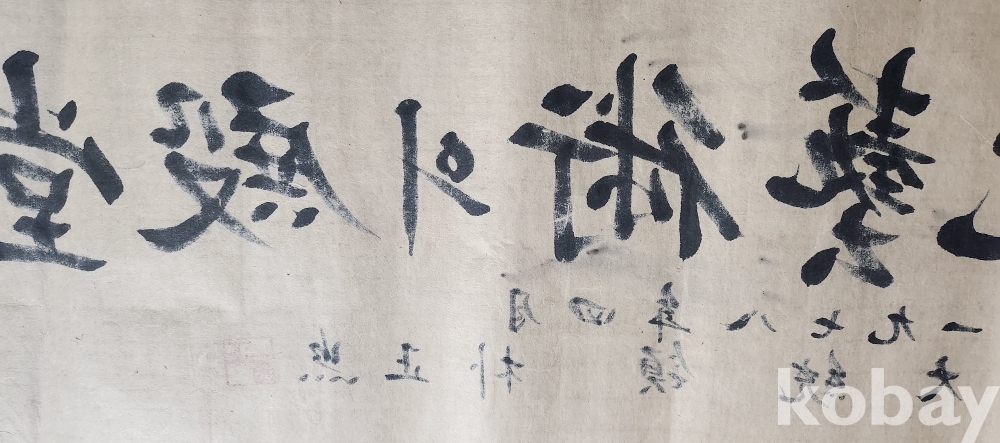 藝術의殿堂
一九七八年四月
大統領 朴正熙
kobay